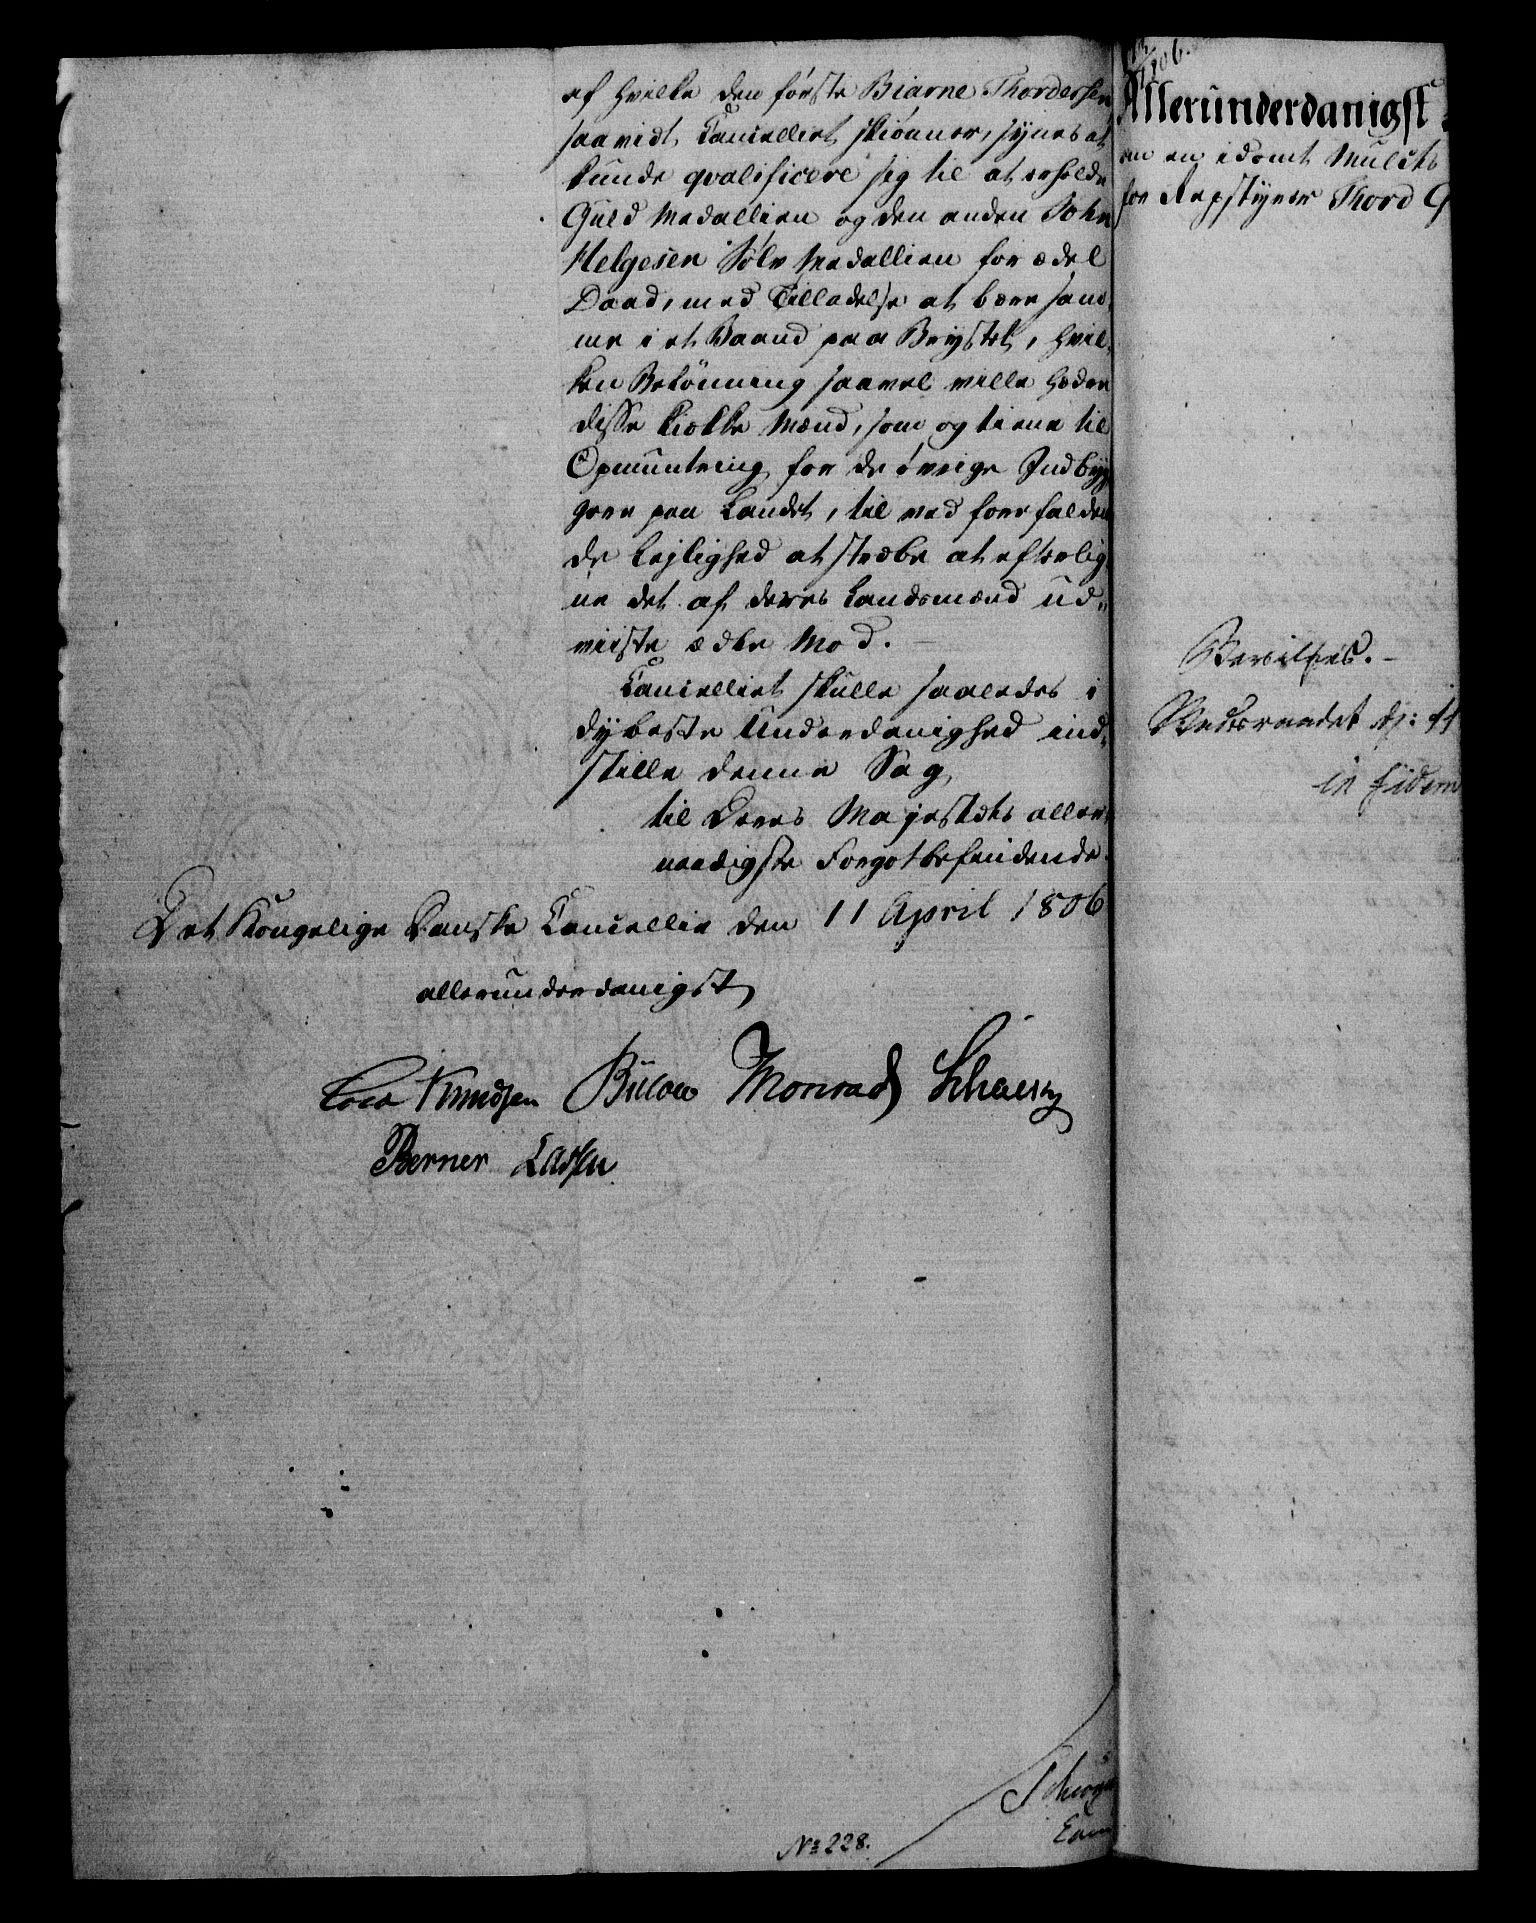 af hvilke den første Biarne Thordersen
saavidt Cancelliet skiønner, synes at
kunde qvalificere sig til at erholde
Guld Medaillen og den anden John
Helgesen Sølv Medaillen for ædel
Daad, med Tilladelse at bære sam¬
me i et Baand paa Brystet, hvil¬
ken Belønning saavel ville hædre
disse kiække Mænd, som og tiene til
Opmuntring for de øvrige Indbyg
gere paa Landet, til ved forefalden
de Lejlighed at stræbe at efterlig
ne det af deres Landsmænd ud¬
viiste ædle Mod.
Cancelliet skulle saaledes i
dybeste Underdanighed ind¬
stille denne Sag
til Deres Majestæts aller¬
naadigste Forgotbefindende.
Det Kongelige Danske Cancellie den 11 April 1806
allerunderdanigst
Knudsen Bülow Monrad
Berner Lassen
No 228.
Allerunderdanigst
om en idømt Mulcts
for Repstyrer Thord G
Bevilges.
in fidem